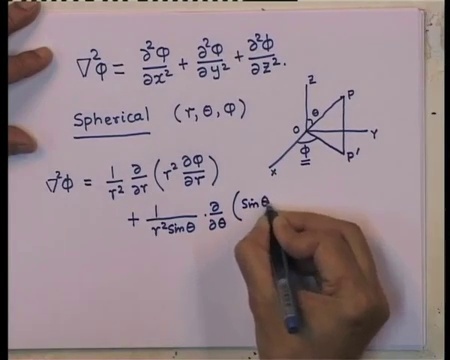 ∇²φ = ∂²φ/∂x² + ∂²φ/∂y² + ∂²φ/∂z².
Spherical (r, θ, φ)
Z
P
θ
O
Y
φ
P'
X
∇²φ = 1/r² ∂/∂r (r² ∂φ/∂r)
+ 1/r²sinθ · ∂/∂θ (sinθ